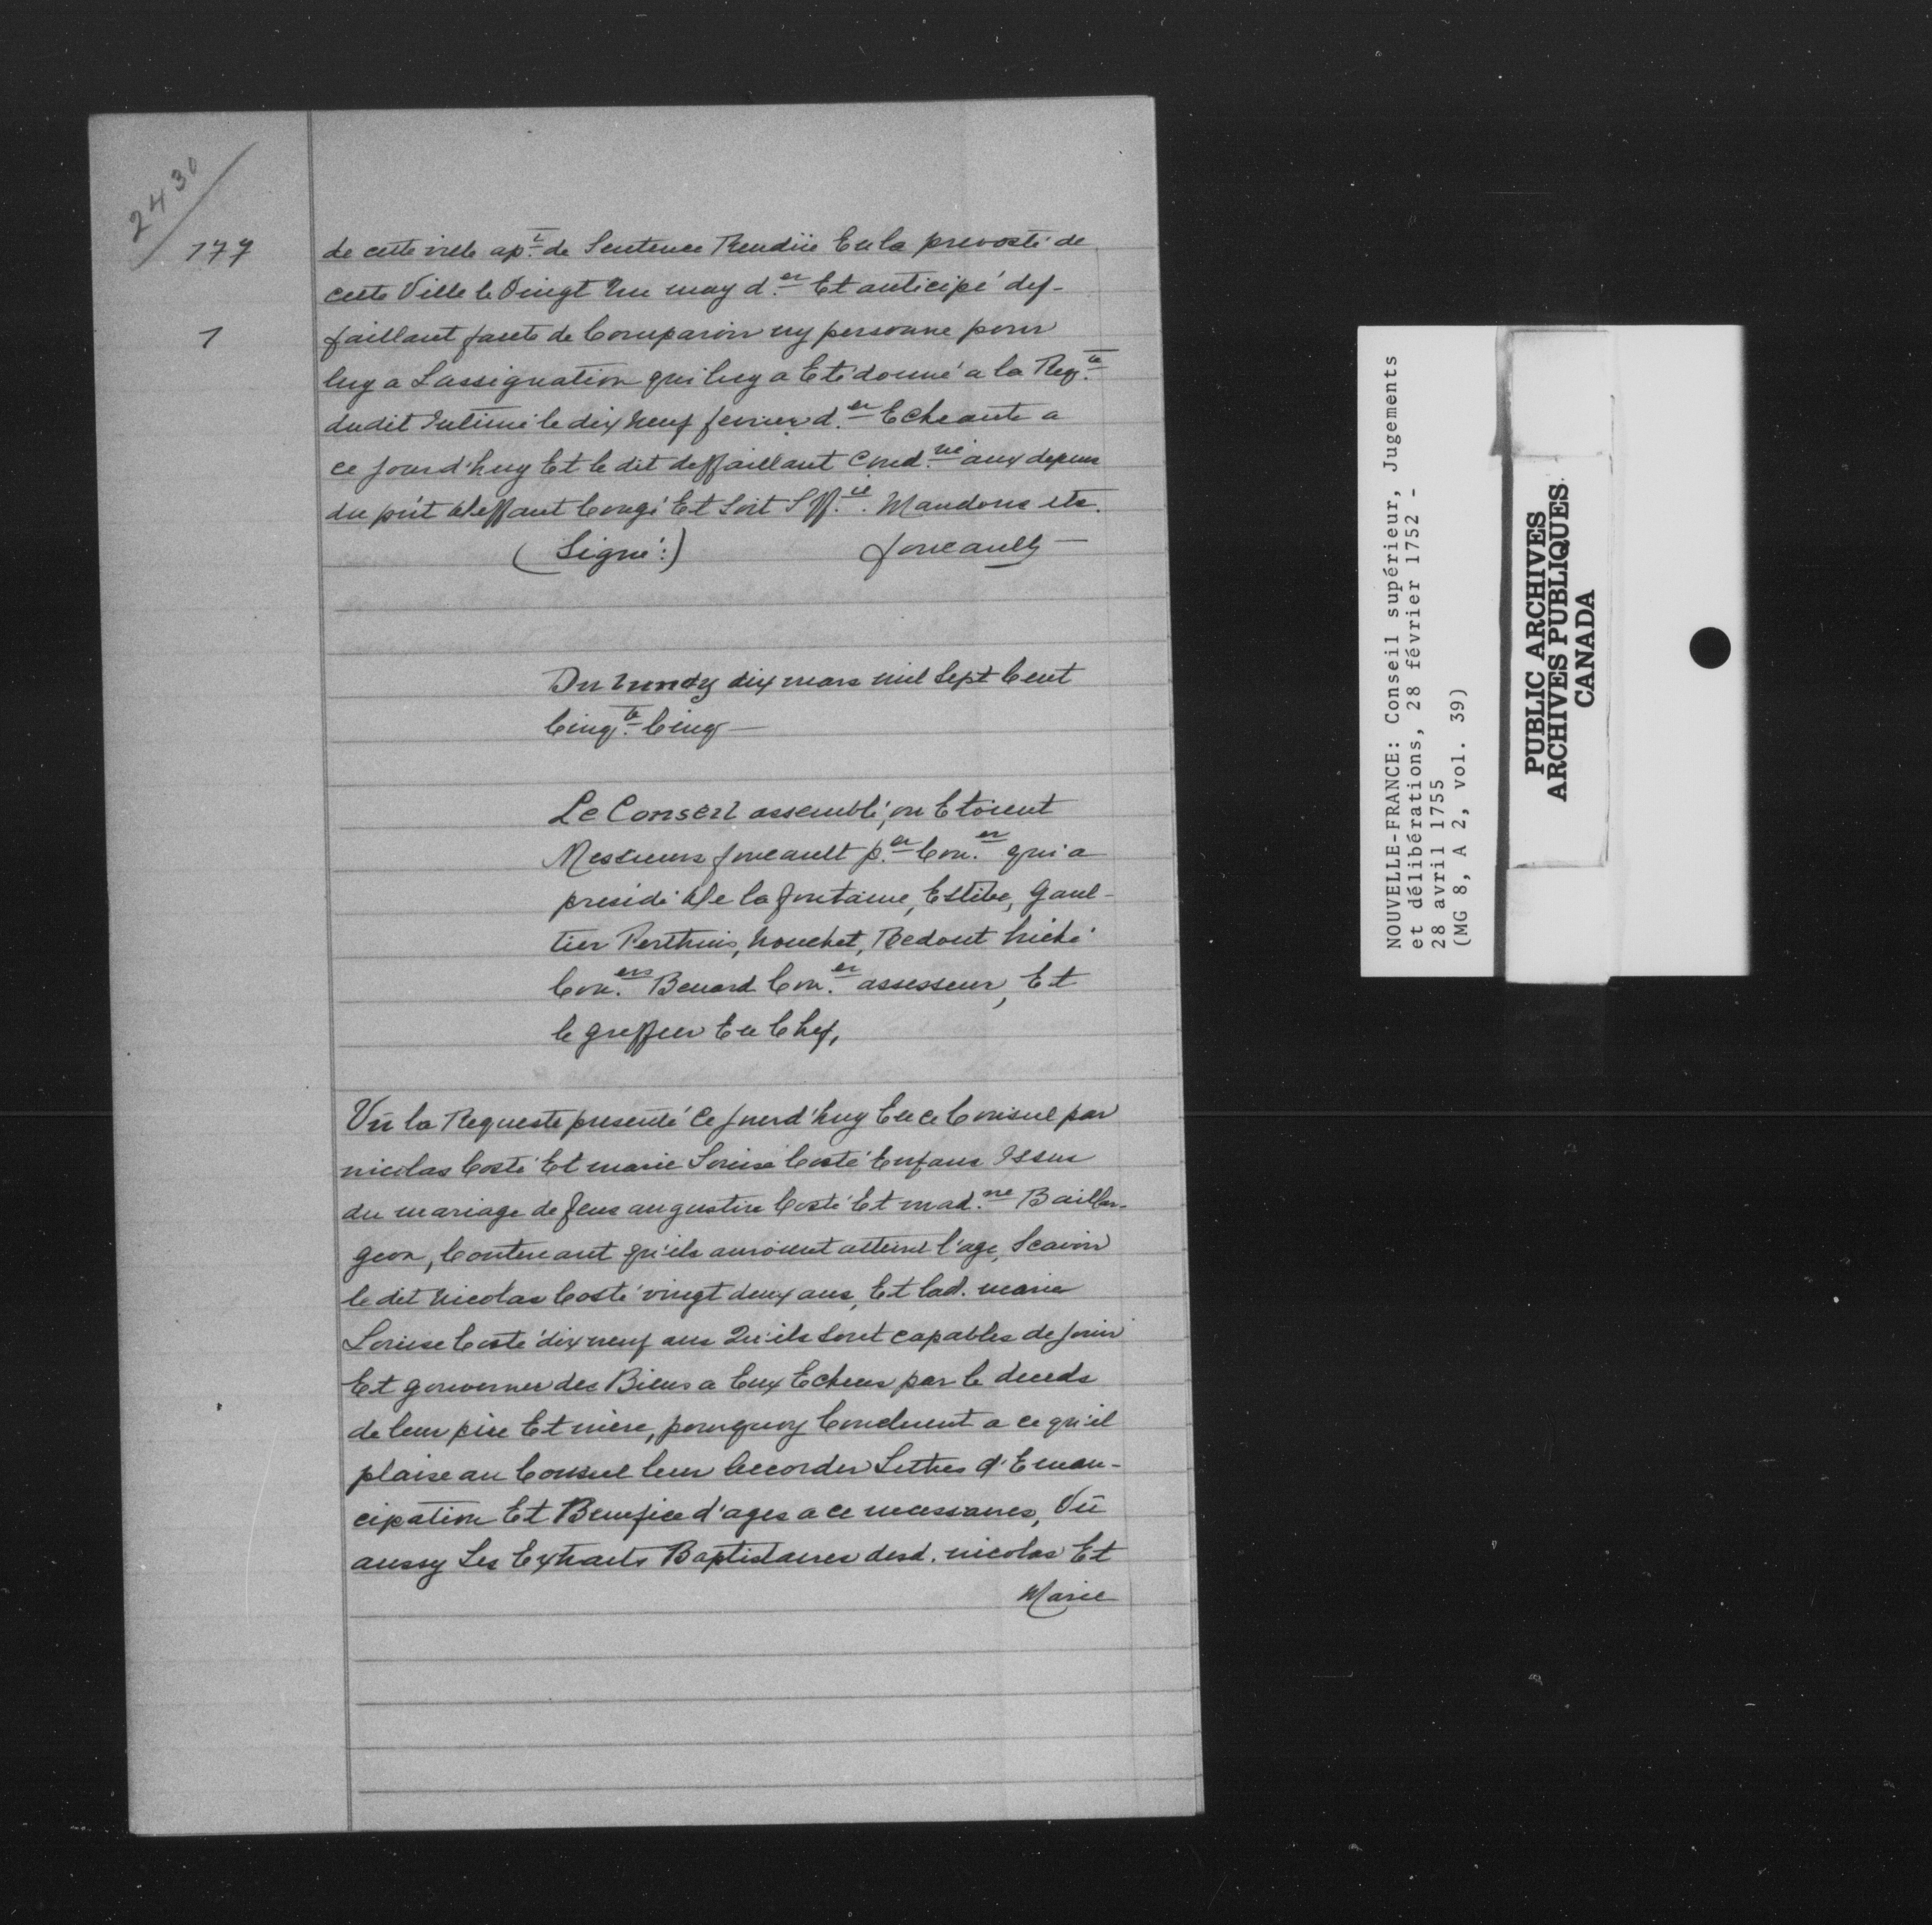 2430
177
de cette ville apt. de Sentence Rendüe En la prevosté de
cette Ville le Vingt Un may der. Et anticipé def-
1
faillant faute de Comparoir ny personne pour
luy a Lassignation qui luy a Eté donné a la Reqte.
dudit Intimé le dix neuf fevrier der. Echeante a
ce jourd'huy Et le dit deffaillant Cond.né aux depens
du pr͞it deffaut Congé Et soit Sff.ié. Mandons etc.
(Signé:) foucault
Du Lundy dix mars mil Sept Cent
Cinqte. Cinq
Le Conseil assemblé, ou Etoient
Messieurs foucault p.er Con.er qui a
presidé De la fontaine, Estebe, Gaul-
tier Perthuis, Nouchet, Bedout hiché
Con.ers Benard Con.er assesseur, Et
le greffier En Chef,
Vû la Requeste presenté Ce jourd'huy En ce Conseil par
nicolas Costé Et marie Louise Costé Enfans Issus
du mariage de feus augustin Costé Et mad.ne Bailler-
geon, Contenant qu'ils auroient atteint l'age, Scavoir
le dit Nicolas Costé vingt deux ans, Et lad. marie
Louise Costé dix neuf ans Qu'ils sont capables de jouir
Et gouverner des Biens a Eux Echeus par le deceds
de leur pere Et mere, pourquoy Concluent a ce qu'il
plaise au Conseil leur accorder Lettres d'Eman-
cipation Et Benefice d'ages a ce necessaires, Vû
aussy Les Extraits Baptistaires desd. nicolas Et
Marie
NOUVELLE-FRANCE: Conseil supérieur, Jugements
et délibérations, 28 février 1752 -
28 avril 1755
(MG 8, A 2, vol. 39)
PUBLIC ARCHIVES
ARCHIVES PUBLIQUES
CANADA